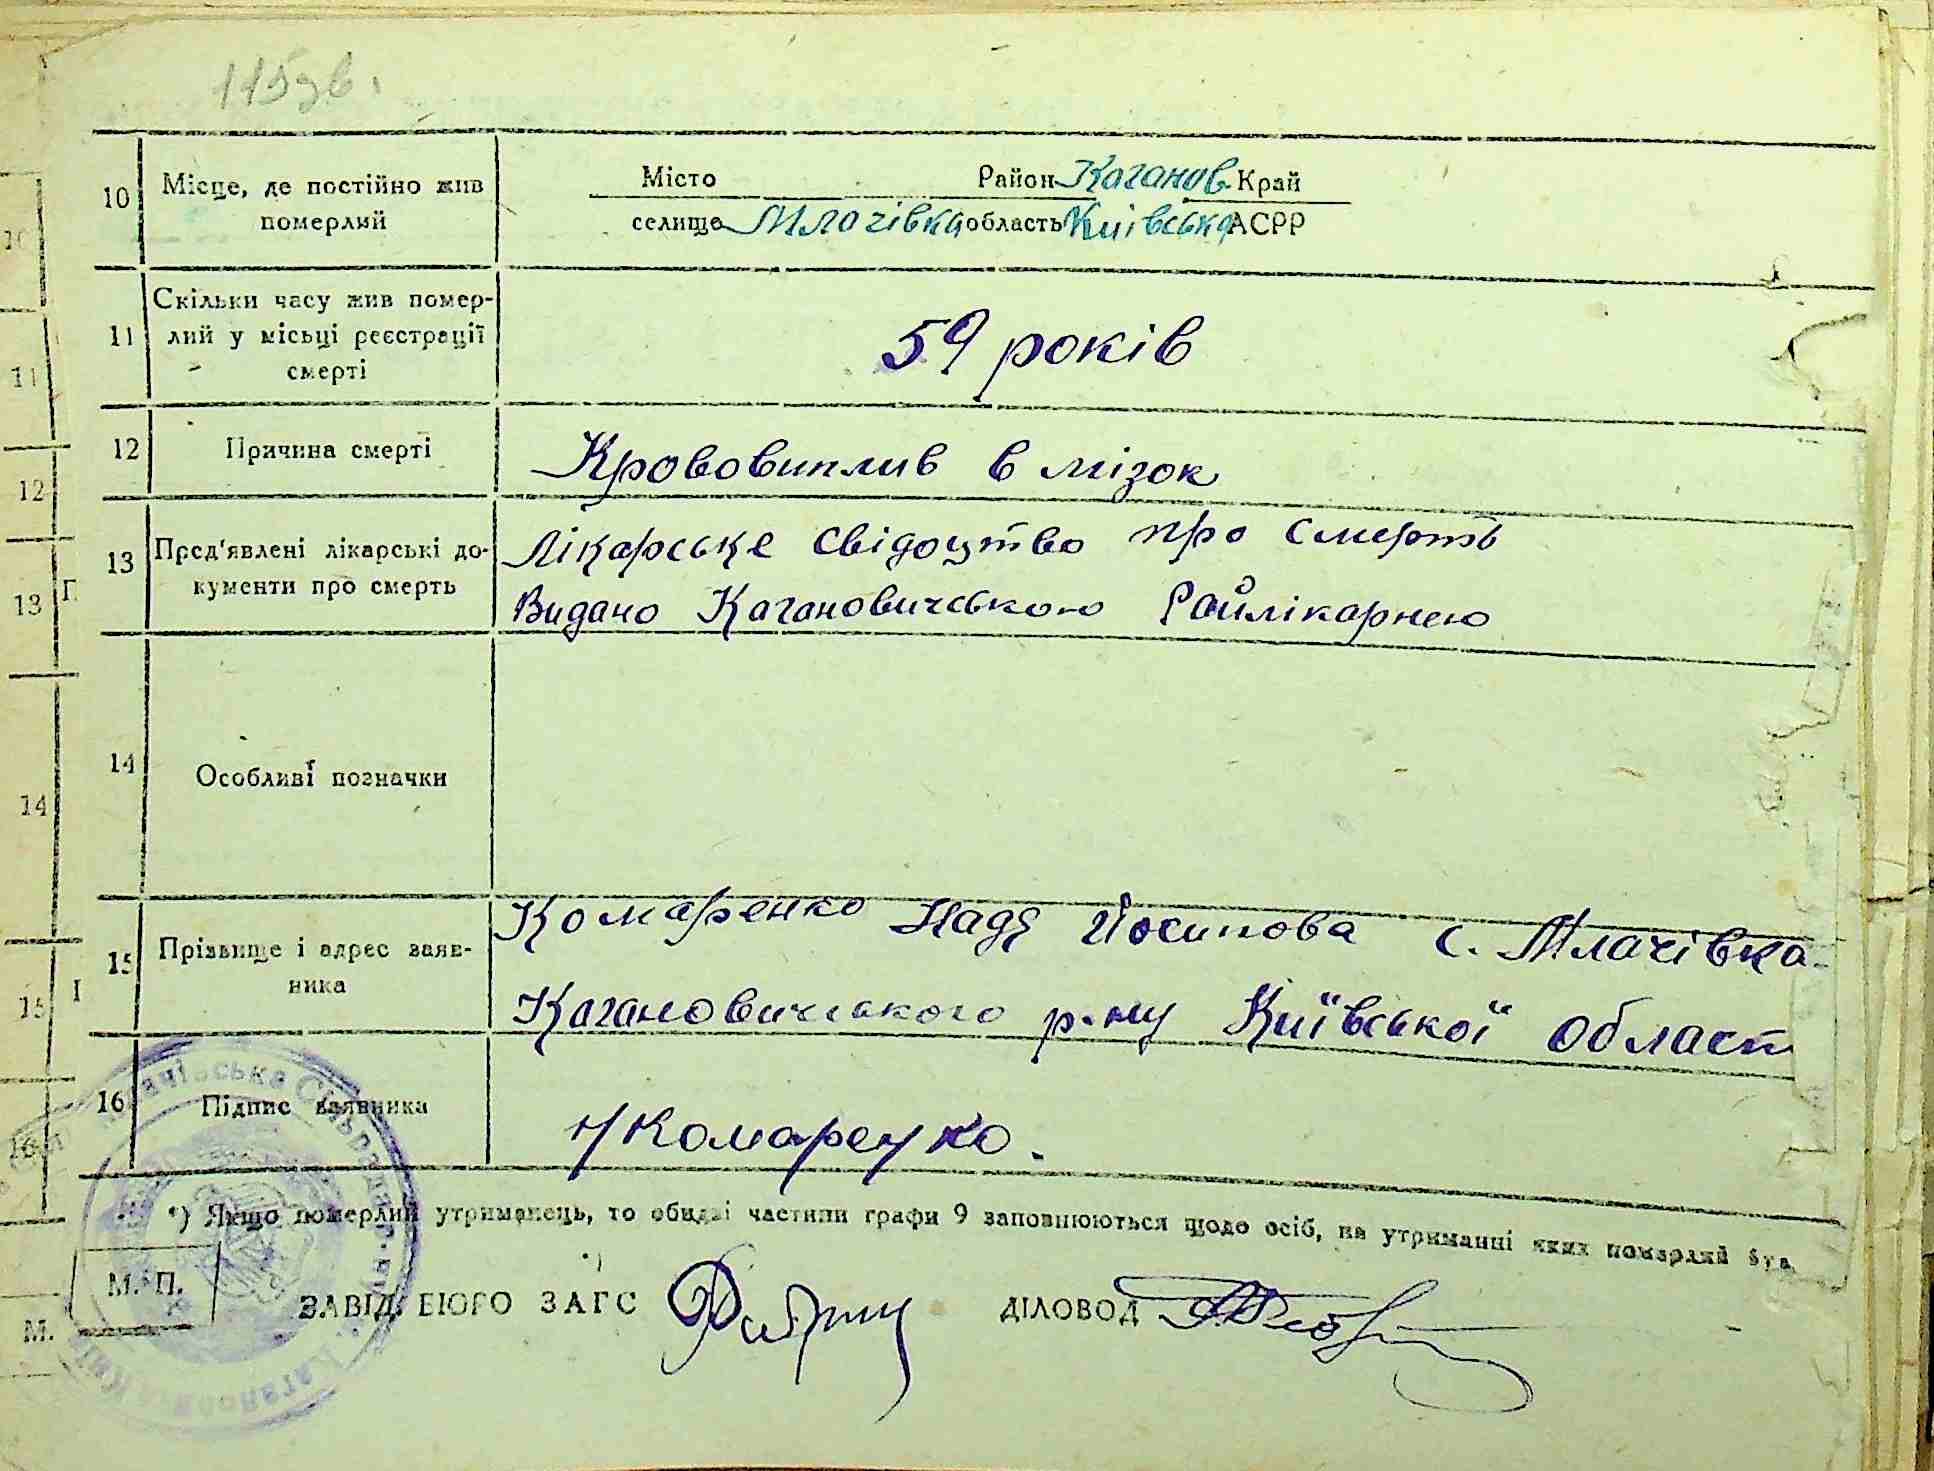 115зв.
10 Місце, де постійно жив померлий
Місто Район Каганов. Край
селище Млочівка область Київська АСРР
11 Скільки часу жив помер-
лий у місьці реєстрації
смерті
59 років
12 Причина смерті Крововиплив в мізок
13 Пред'явлені лікарські до-
кументи про смерть
Лікарське свідоцтво про смерть
Видано Кагановичською Райлікарнею
14 Особливі позначки
15 Прізвище і адрес заяв-
ника
Комаренко Надя Йосипова с. Млачівка
Кагановичського р-ну Київської област
16 Підпис заявника Н Комаренко.
*) Якщо померлий утриманець, то обидві частини графи 9 заповнюються щодо осіб, на утриманні яких померлий був
М. П.
ЗАВІД. БЮРО ЗАГС ДІЛОВОД
10
11
12
13 П
14
15
16
М.